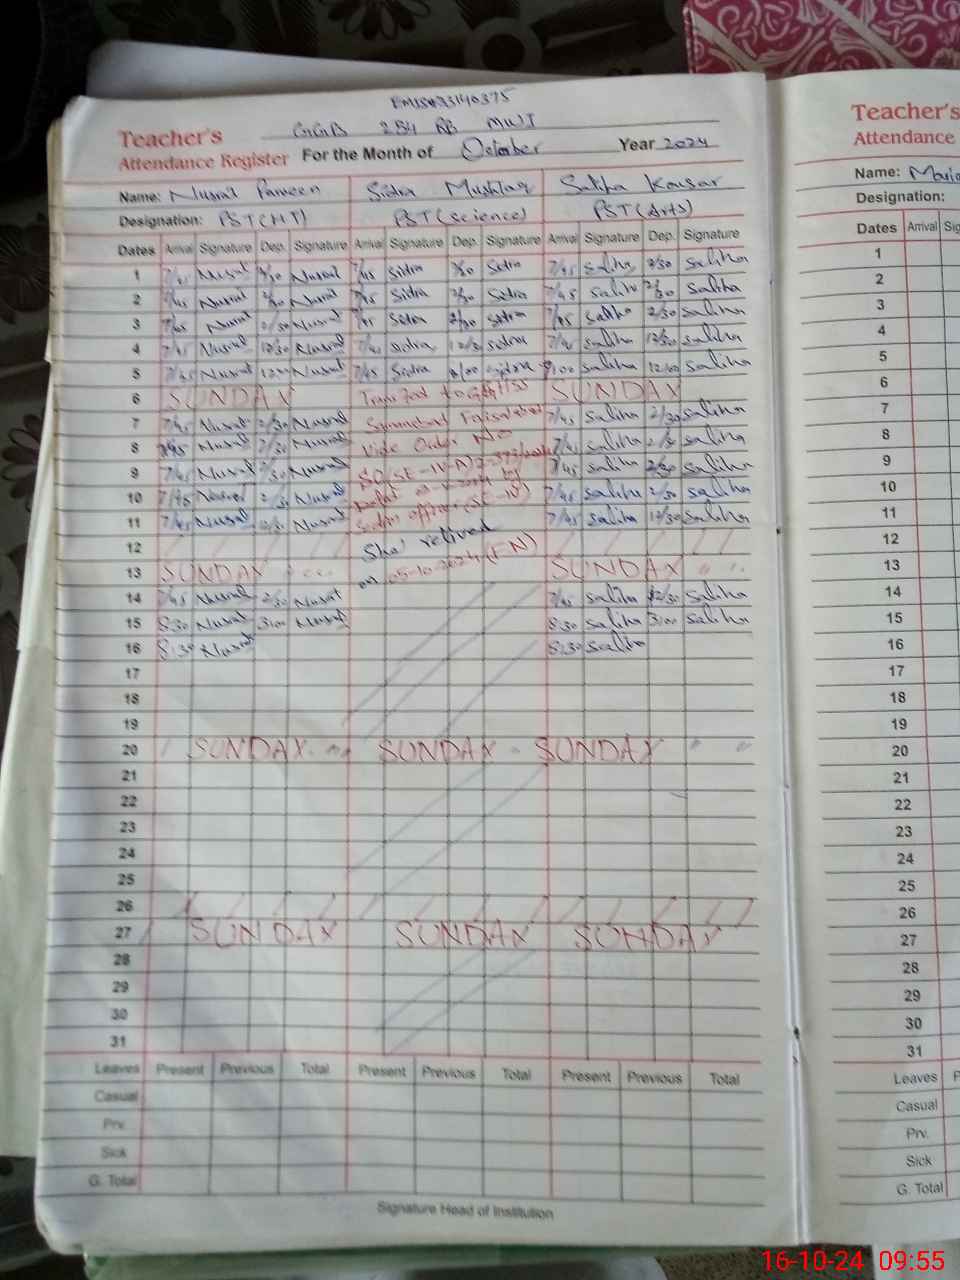 EMIS#33140375
Teacher's
GGPS 284 RB MWI
Attendance Register For the Month of October Year 2024
Name: Nusrat Parveen Sidra Mushtaq Saliha Kousar
Designation: PST(HT) PST(science) PST(Arts)
Dates Arrival Signature Dep. Signature Arrival Signature Dep. Signature Arrival Signature Dep. Signature
1 7/45 Nusrat 2/30 Nusrat 7/45 Sidra 2/30 Sidra 7/45 Saliha 2/30 Saliha
2 7/45 Nusrat 2/30 Nusrat 7/45 Sidra 2/30 Sidra 7/45 Saliha 2/30 Saliha
3 7/45 Nusrat 2/30 Nusrat 7/45 Sidra 2/30 Sidra 7/45 Saliha 2/30 Saliha
4 7/45 Nusrat 12/30 Nusrat 7/45 Sidra 12/30 Sidra 7/45 Saliha 12/30 Saliha
5 7/45 Nusrat Nusrat 7/45 Sidra Sidra Saliha 12/00 Saliha
6 SUNDAY SUNDAY
7 7/45 Nusrat 2/30 Nusrat 7/45 Saliha 2/30 Saliha
8 7/45 Nusrat 2/30 Nusrat 7/45 Saliha 2/30 Saliha
9 7/45 Nusrat 2/30 Nusrat 7/45 Saliha 2/30 Saliha
10 7/45 Nusrat 2/30 Nusrat 7/45 Saliha 2/30 Saliha
11 7/45 Nusrat 12/30 Nusrat 7/45 Saliha 12/30 Saliha
to GGHSS
Faisalabad
Vide Order No
SO(SE-IV-A)
by
Section officer (SE-IV)
She relieved
on 05-10-2024 (FN)
12
13 SUNDAY SUNDAY
14 7/45 Nusrat 2/30 Nusrat 7/45 Saliha 2/30 Saliha
15 8:30 Nusrat 3:00 Nusrat 8:30 Saliha 3:00 Saliha
16 8:30 Nusrat 8:30 Saliha
17
18
19
20 SUNDAY SUNDAY SUNDAY
21
22
23
24
25
26
27 SUNDAY SUNDAY SUNDAY
28
29
30
31
Leaves Present Previous Total Present Previous Total Present Previous Total
Casual
Prv.
Sick
G. Total
Signature Head of Institution
Teacher's
Attendance
Name:
Designation:
Dates Arrival
1
2
3
4
5
6
7
8
9
10
11
12
13
14
15
16
17
18
19
20
21
22
23
24
25
26
27
28
29
30
31
Leaves
Casual
Prv.
Sick
G. Total
16-10-24 09:55